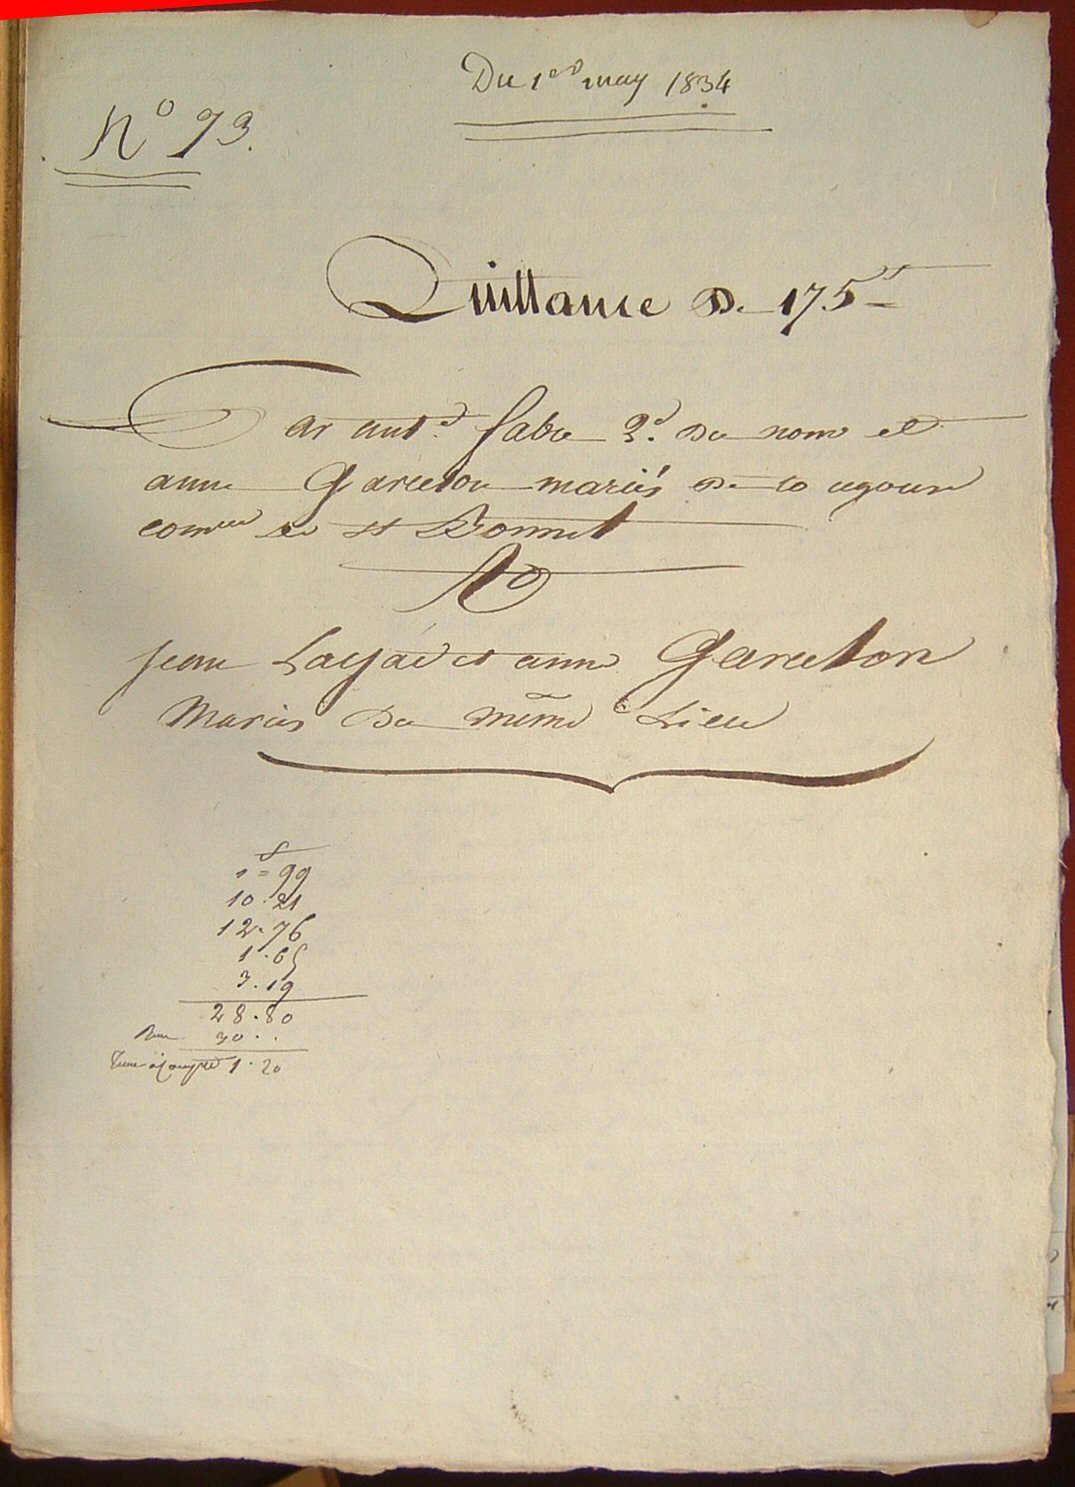 Du 1er may 1834
N° 93.
Quittance De 175f
Par ant.e fabre 3.e du nom et
anne Garceton mariés De
comune de st Bonnet
A
jean et anne Garceton
Mariés Du même Lieu
f
1 = 99
10 . 21
12 . 76
1 . 65
3 . 19
28 . 80
Reçu 30 . .
1 . 20